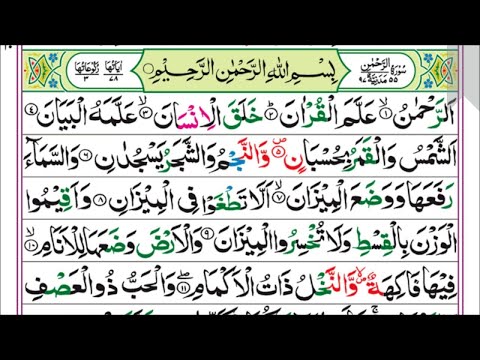 سُوْرَةُ الرَّحْمٰنِ ٥٥ مَدَنِيَّةٌ ٩٧ بِسْمِ اللّٰهِ الرَّحْمٰنِ الرَّحِيْمِ اٰيَاتُهَا ٧٨ رُكُوْعَاتُهَا ٣
اَلرَّحْمٰنُ ۙ﴿١﴾ عَلَّمَ الْقُرْاٰنَ ؕ﴿٢﴾ خَلَقَ الْاِنْسَانَ ۙ﴿٣﴾ عَلَّمَهُ الْبَيَانَ ﴿٤﴾
اَلشَّمْسُ وَالْقَمَرُ بِحُسْبَانٍ ۪﴿٥﴾ وَّالنَّجْمُ وَالشَّجَرُ يَسْجُدٰنِ ﴿٦﴾ وَالسَّمَآءَ
رَفَعَهَا وَوَضَعَ الْمِيْزَانَ ۙ﴿٧﴾ اَلَّا تَطْغَوْا فِى الْمِيْزَانِ ﴿٨﴾ وَاَقِيْمُوا
الْوَزْنَ بِالْقِسْطِ وَلَا تُخْسِرُوا الْمِيْزَانَ ﴿٩﴾ وَالْاَرْضَ وَضَعَهَا لِلْاَنَامِ ۙ﴿١٠﴾
فِيْهَا فَاكِهَةٌ ۪ۙ وَّالنَّخْلُ ذَاتُ الْاَكْمَامِ ۖ﴿١١﴾ وَالْحَبُّ ذُو الْعَصْفِ